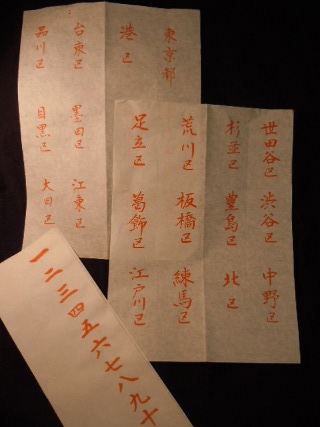 東京都
港区
台東区 墨田区 江東区
品川区 目黒区 大田区
世田谷区 渋谷区 中野区
杉並区 豊島区 北区
荒川区 板橋区 練馬区
足立区 葛飾区 江戸川区
一二三四五六七八九十